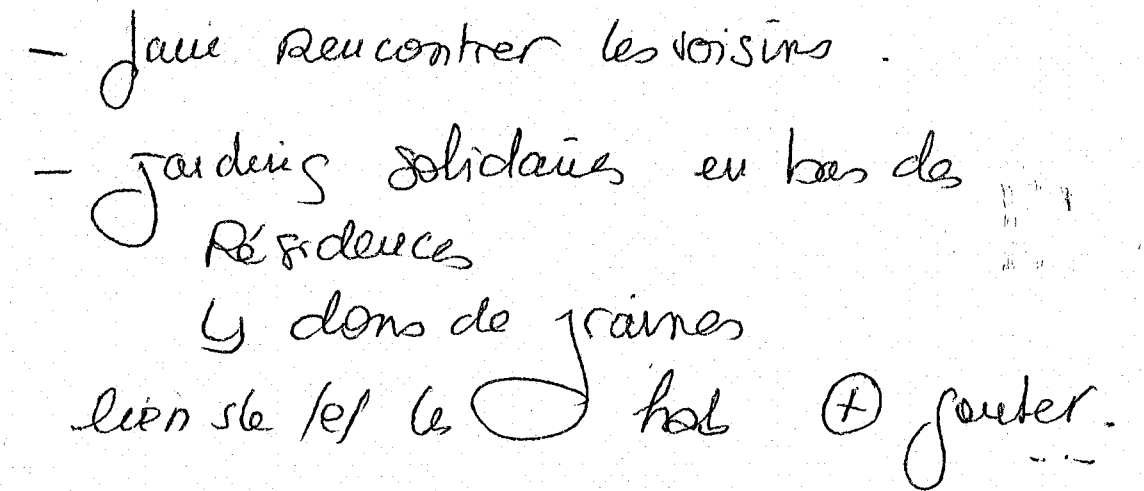 - faire Rencontrer les voisins.
- Jardins solidaires en bas des
Résidences
↳ dons de graines
lien sle /e/ les hab ⊕ gouter.